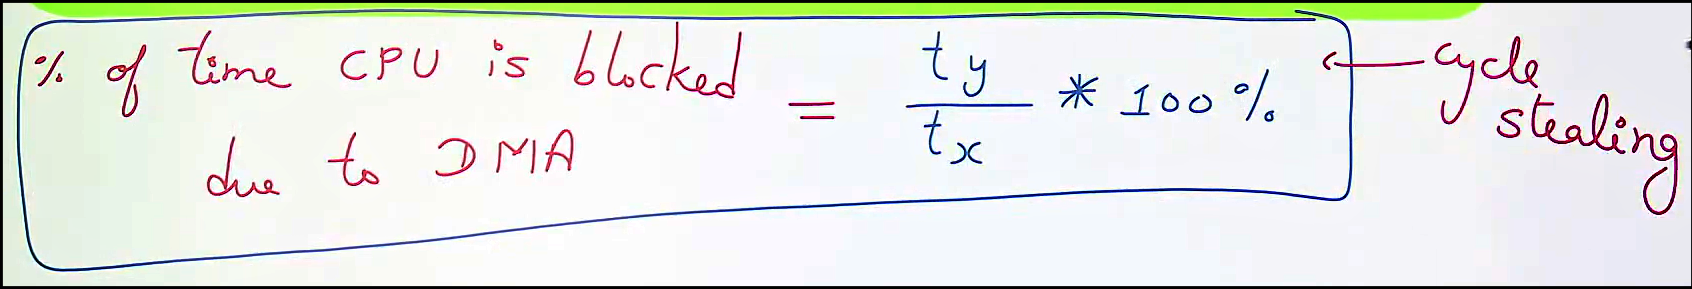 % of time CPU is blocked
due to DMA
= ty / tx * 100%
← cycle
stealing